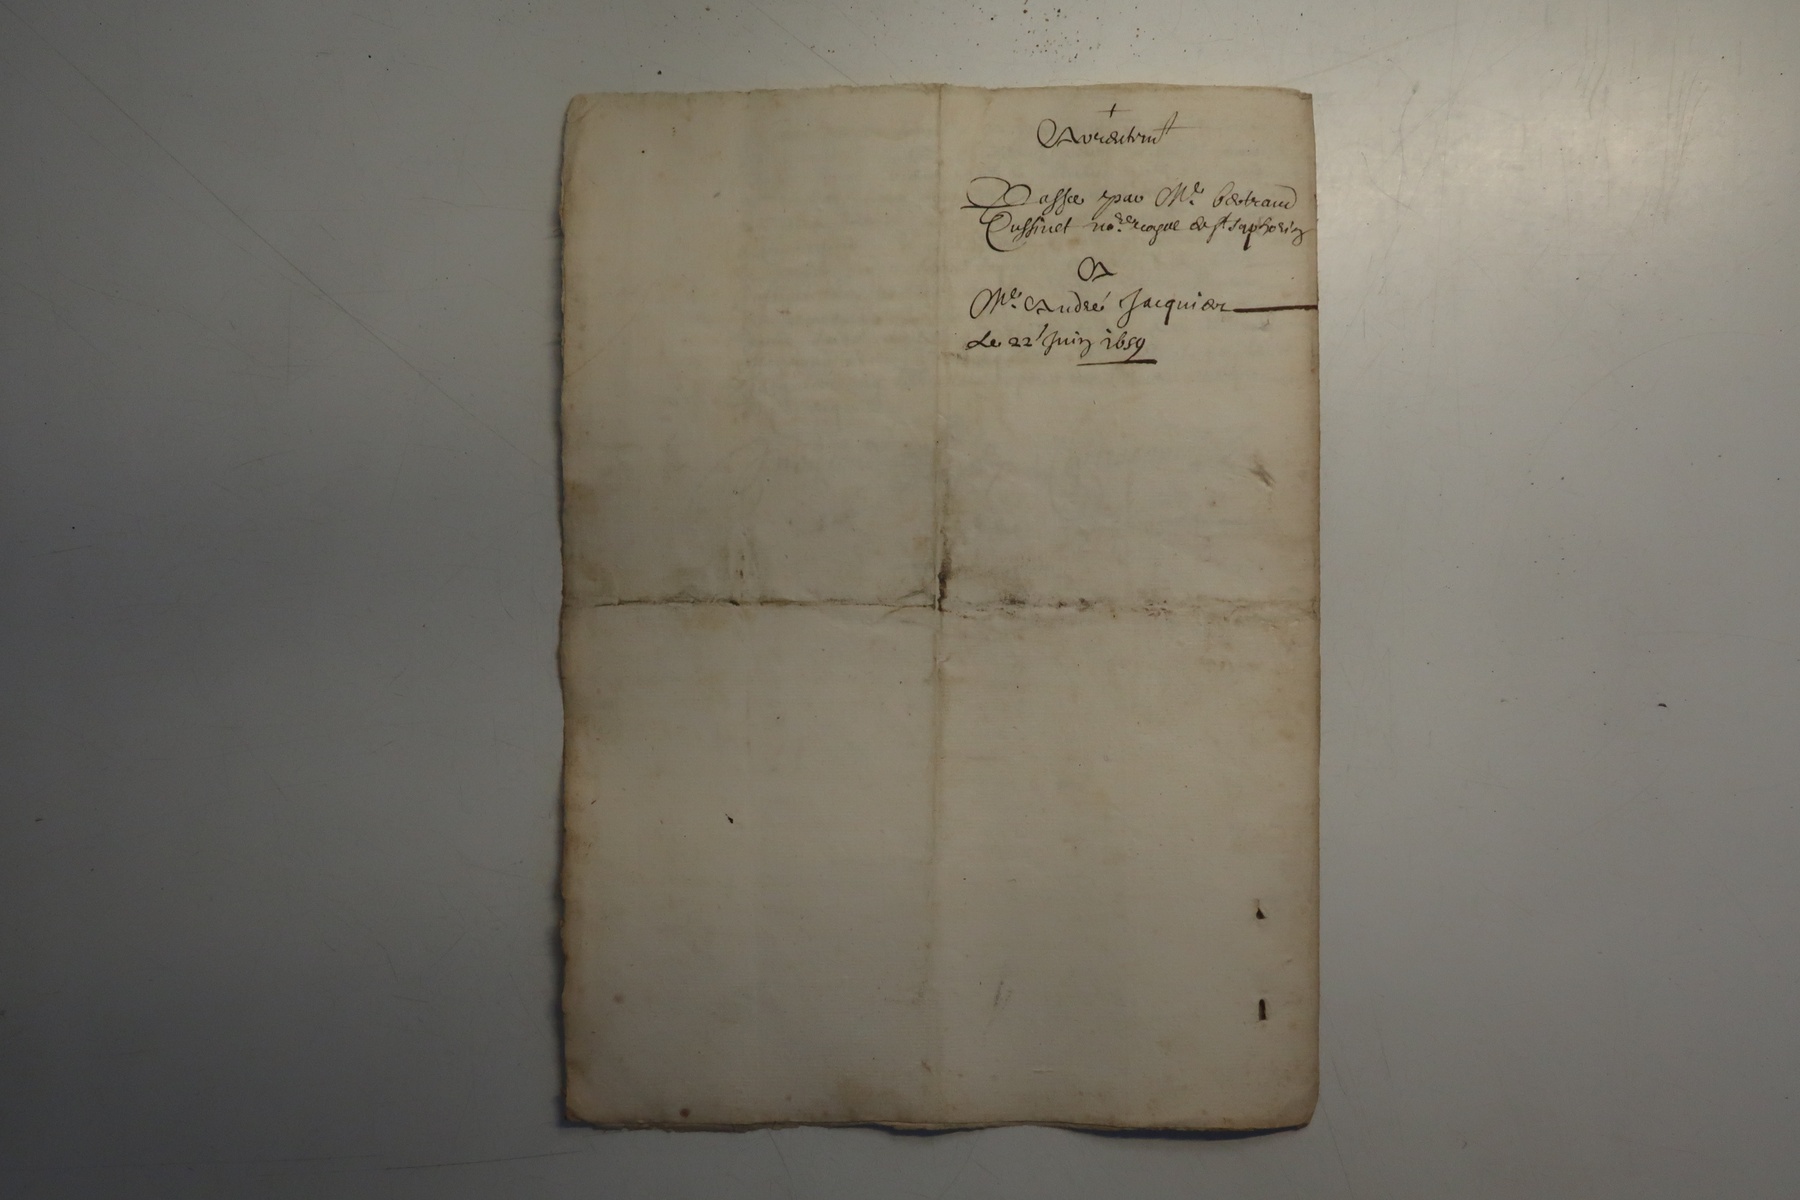 +
Passée par Me. bertrand
Cussinet nore. royal de st saphorin
A
Me. André Jacquier
Le 22e Juin 1659